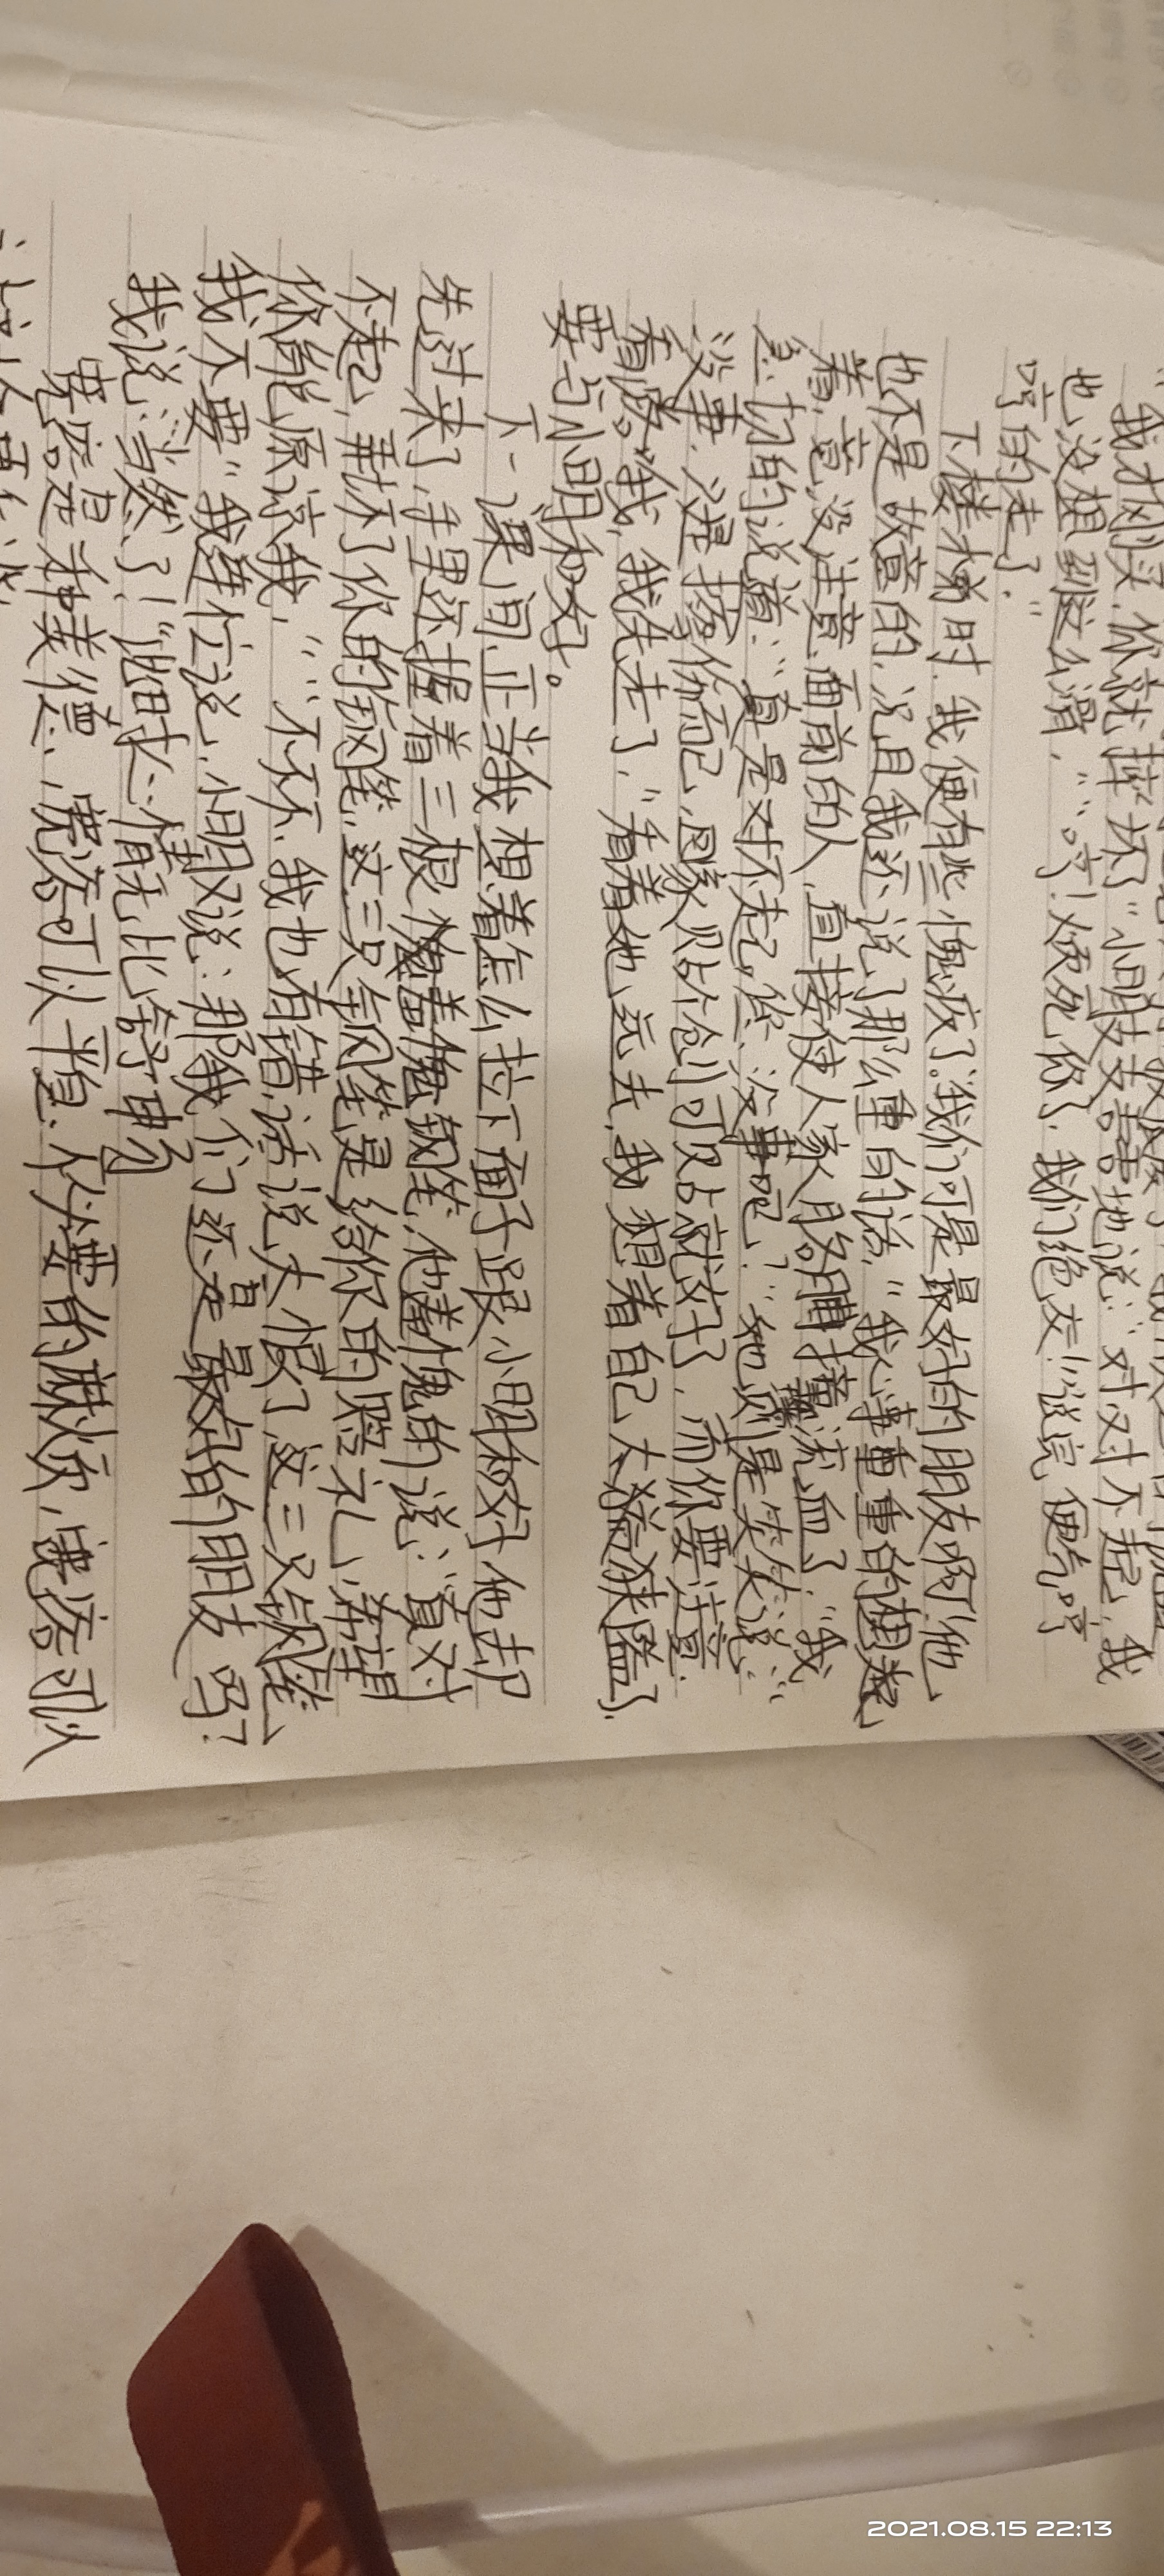 我才刚买,你就摔坏了"小明支支吾吾地说:"对对对不起,我
也没想到这么滑,""哼!烦死你了,我们绝友!"说完便气哼
哼的走了."
下楼梯时,我便有些愧疚了。我们可是最好的朋友啊,他
也不是故意的,况且我还说了那么重的话."我心事重重的想
着,竟没注意面前的人,直接使人家 流血了,"我
急切的说道:"真是对不起,您没事吧!"她则是笑笑说:"
没事,只是擦伤而已,回家贴个创可贴就好了,而你要注意
看路哦,我先走了,"看着她远去,我想着自己太 狭隘了.
要与小明和好。
下一课间,正当我想着怎么拉下面子跟小明和好,他却
先过来了,手里还握着三根 钢笔,他羞愧的说:"真对
不起,弄坏了你的钢笔,这三只钢笔是给你的赔礼,希望
你能原谅我,""不不不,我也有错,话说太狠了,这三只钢笔
我不要"我连忙说,小明又说:那我们还是最好的朋友吗?
我说:"当然了!"此时
宽容是一种美德,宽容可以平息 不必要的麻烦,宽容可以